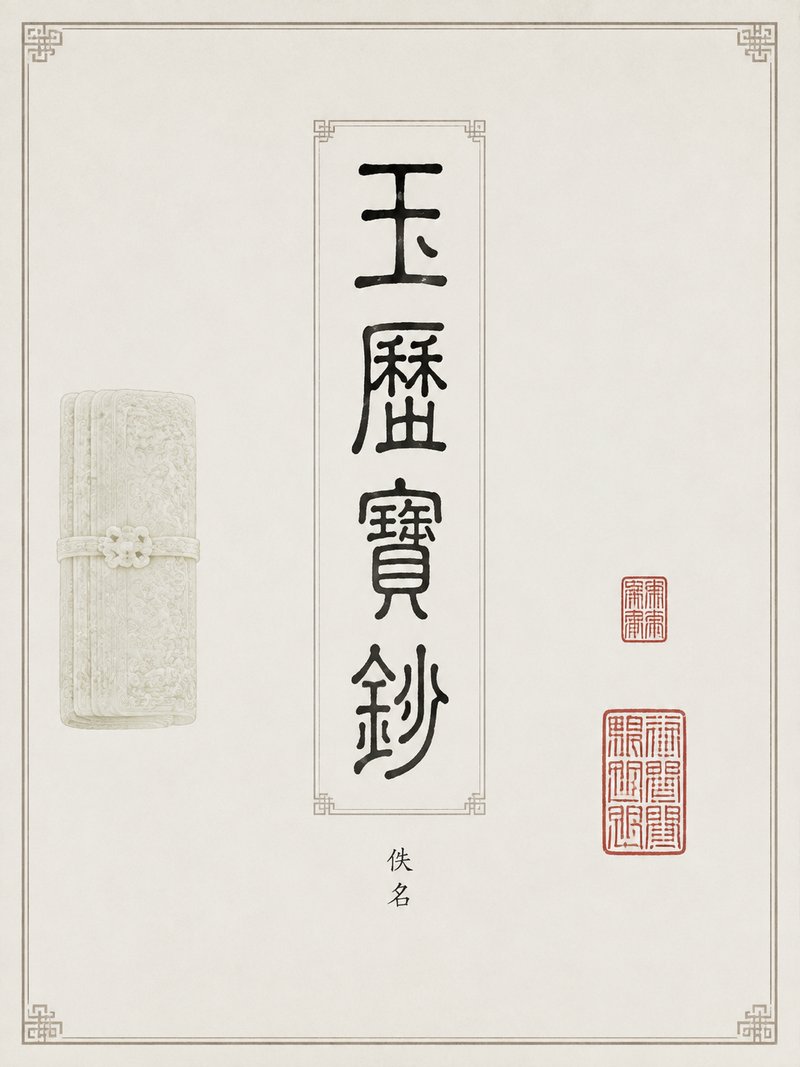 玉歷寶鈔
佚名